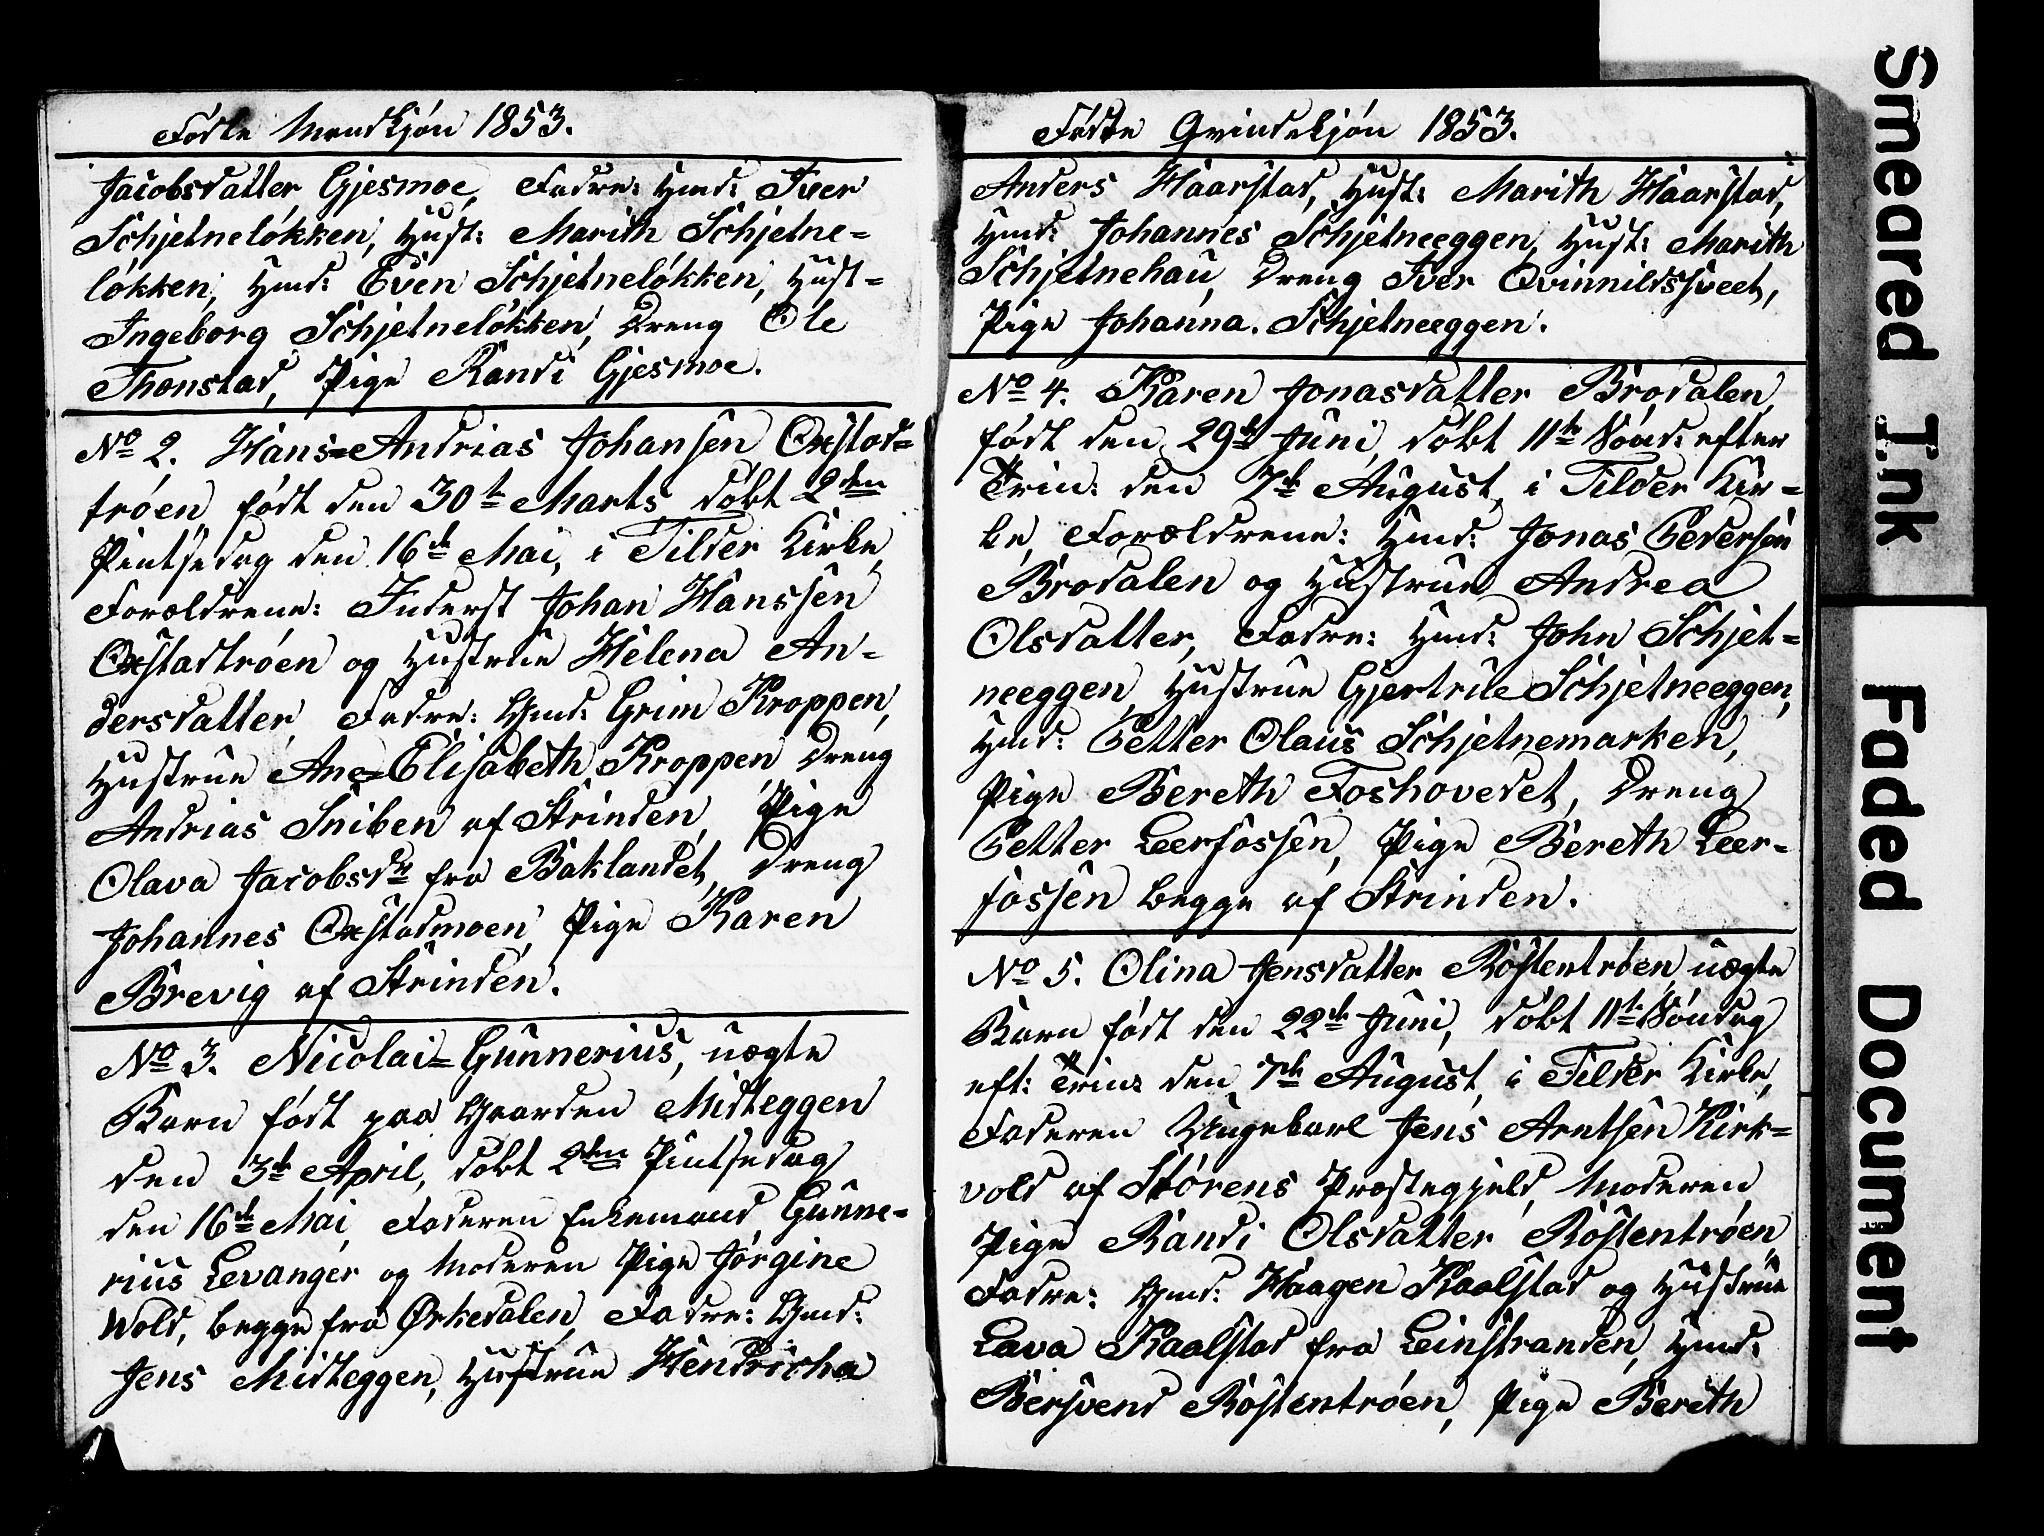 Födte Mandkjön 1853.
Jacobsdatter Gjesmoe, Fadre: Hmd: Iver
Schjetnelökken, Hust: Marith Schjetne=
lökken, Hmd: Even Schjetnelökken, Hust=
Ingeborg Schjetnelökken, Dreng Ole
Thonstad, Pige Randi Gjesmoe.
No 2. Hans=Andrias Johansen Oxstad=
tröen, födt den 30te Marts döbt 2den
Pintsedag den 16de Mai, i Tilder Kirke,
Forældrene: Inderst Johan Hanssen
Oxstadtröen og Hustrue Helena An=
dersdatter, Fadre: Gmd: Grim Kroppen,
Hustrue Ane=Elisabeth Kroppen Dreng
Andrias Sniben af Strinden, Pige
Olava Jacobsdr fra Baklandet, Dreng
Johannes Oxstadmoen, Pige Karen
Brevig af Strinden.
No 3. Nicolai=Gunnerius, uægte
Barn födt paa Gaarden Midteggen
den 3de April, döbt 2den Pintsedag
den 16de Mai, Faderen Enkemand Gunne=
rius Levanger og Moderen Pige Jörgine
Wold, begge fra Ørkedalen, Fadre: Gmd:
Jens Midteggen, Hustrue Hendricha
Födte Qvindekjön 1853.
Anders Haarstad, Hust: Marith Haarstad,
Hmd: Johannes Schjetneeggen, Hust: Marith
Schjetnehau, Dreng Iver Qvinnildssveet,
Pige Johanna Schjetneeggen.
No 4. Karen Jonasdatter Brodalen,
födt den 29de Juni, döbt 11te Sönd: efter
Trin: den 7de August, i Tilder Kir=
ke, Forældrene: Hmd: Jonas Pedersen
Brodalen og Hustrue Andrea
Olsdatter, Fadre: Hmd: John Schjet=
neeggen, Hustrue Gjertrue Schjetneeggen,
Hmd: Petter Olaus Schjetnemarken,
Pige Bereth Foshovedet, Dreng
Petter Leerfossen, Pige Bereth Leer=
fossen begge af Strinden.
No 5. Olina Jensdatter Röstentröen, uægte
Barn födt den 22de Juni, döbt 11te Söndag
eft: Trin: den 7de August, i Tilder Kirke,
Faderen Ungekarl Jens Arntsen Kirk=
vold af Störens Præstegjeld, Moderen
Pige Randi Olsdatter Röstentröen,
Fadre: Gmd: Haagen Kaalstad og Hustrue
Lava Kaalstad fra Leinstranden, Hmd:
Bersvend Röstentröen, Pige Bereth
Smeared Ink
Faded Document